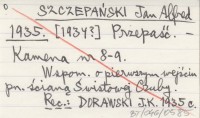 SZCZEPAŃSKI Jan Alfred
1935. [1934?] Przepaść. –
Kamena nr 8-9.
Wspom. o pierwszym wejściu
pn. ścianą Świstowej Czuby.
Rec.: DORAWSKI J.K. 1935 c.